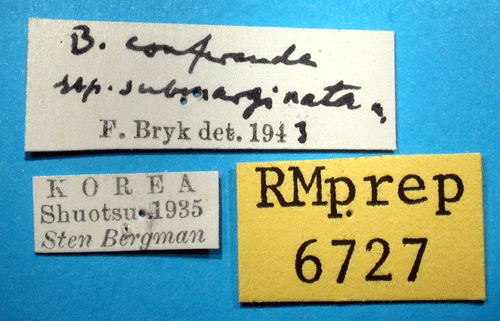 B. conferenda
ssp. submarginata
F. Bryk det. 1943
KOREA
Shuotsu 1935
Sten Bergman
RMprep
6727